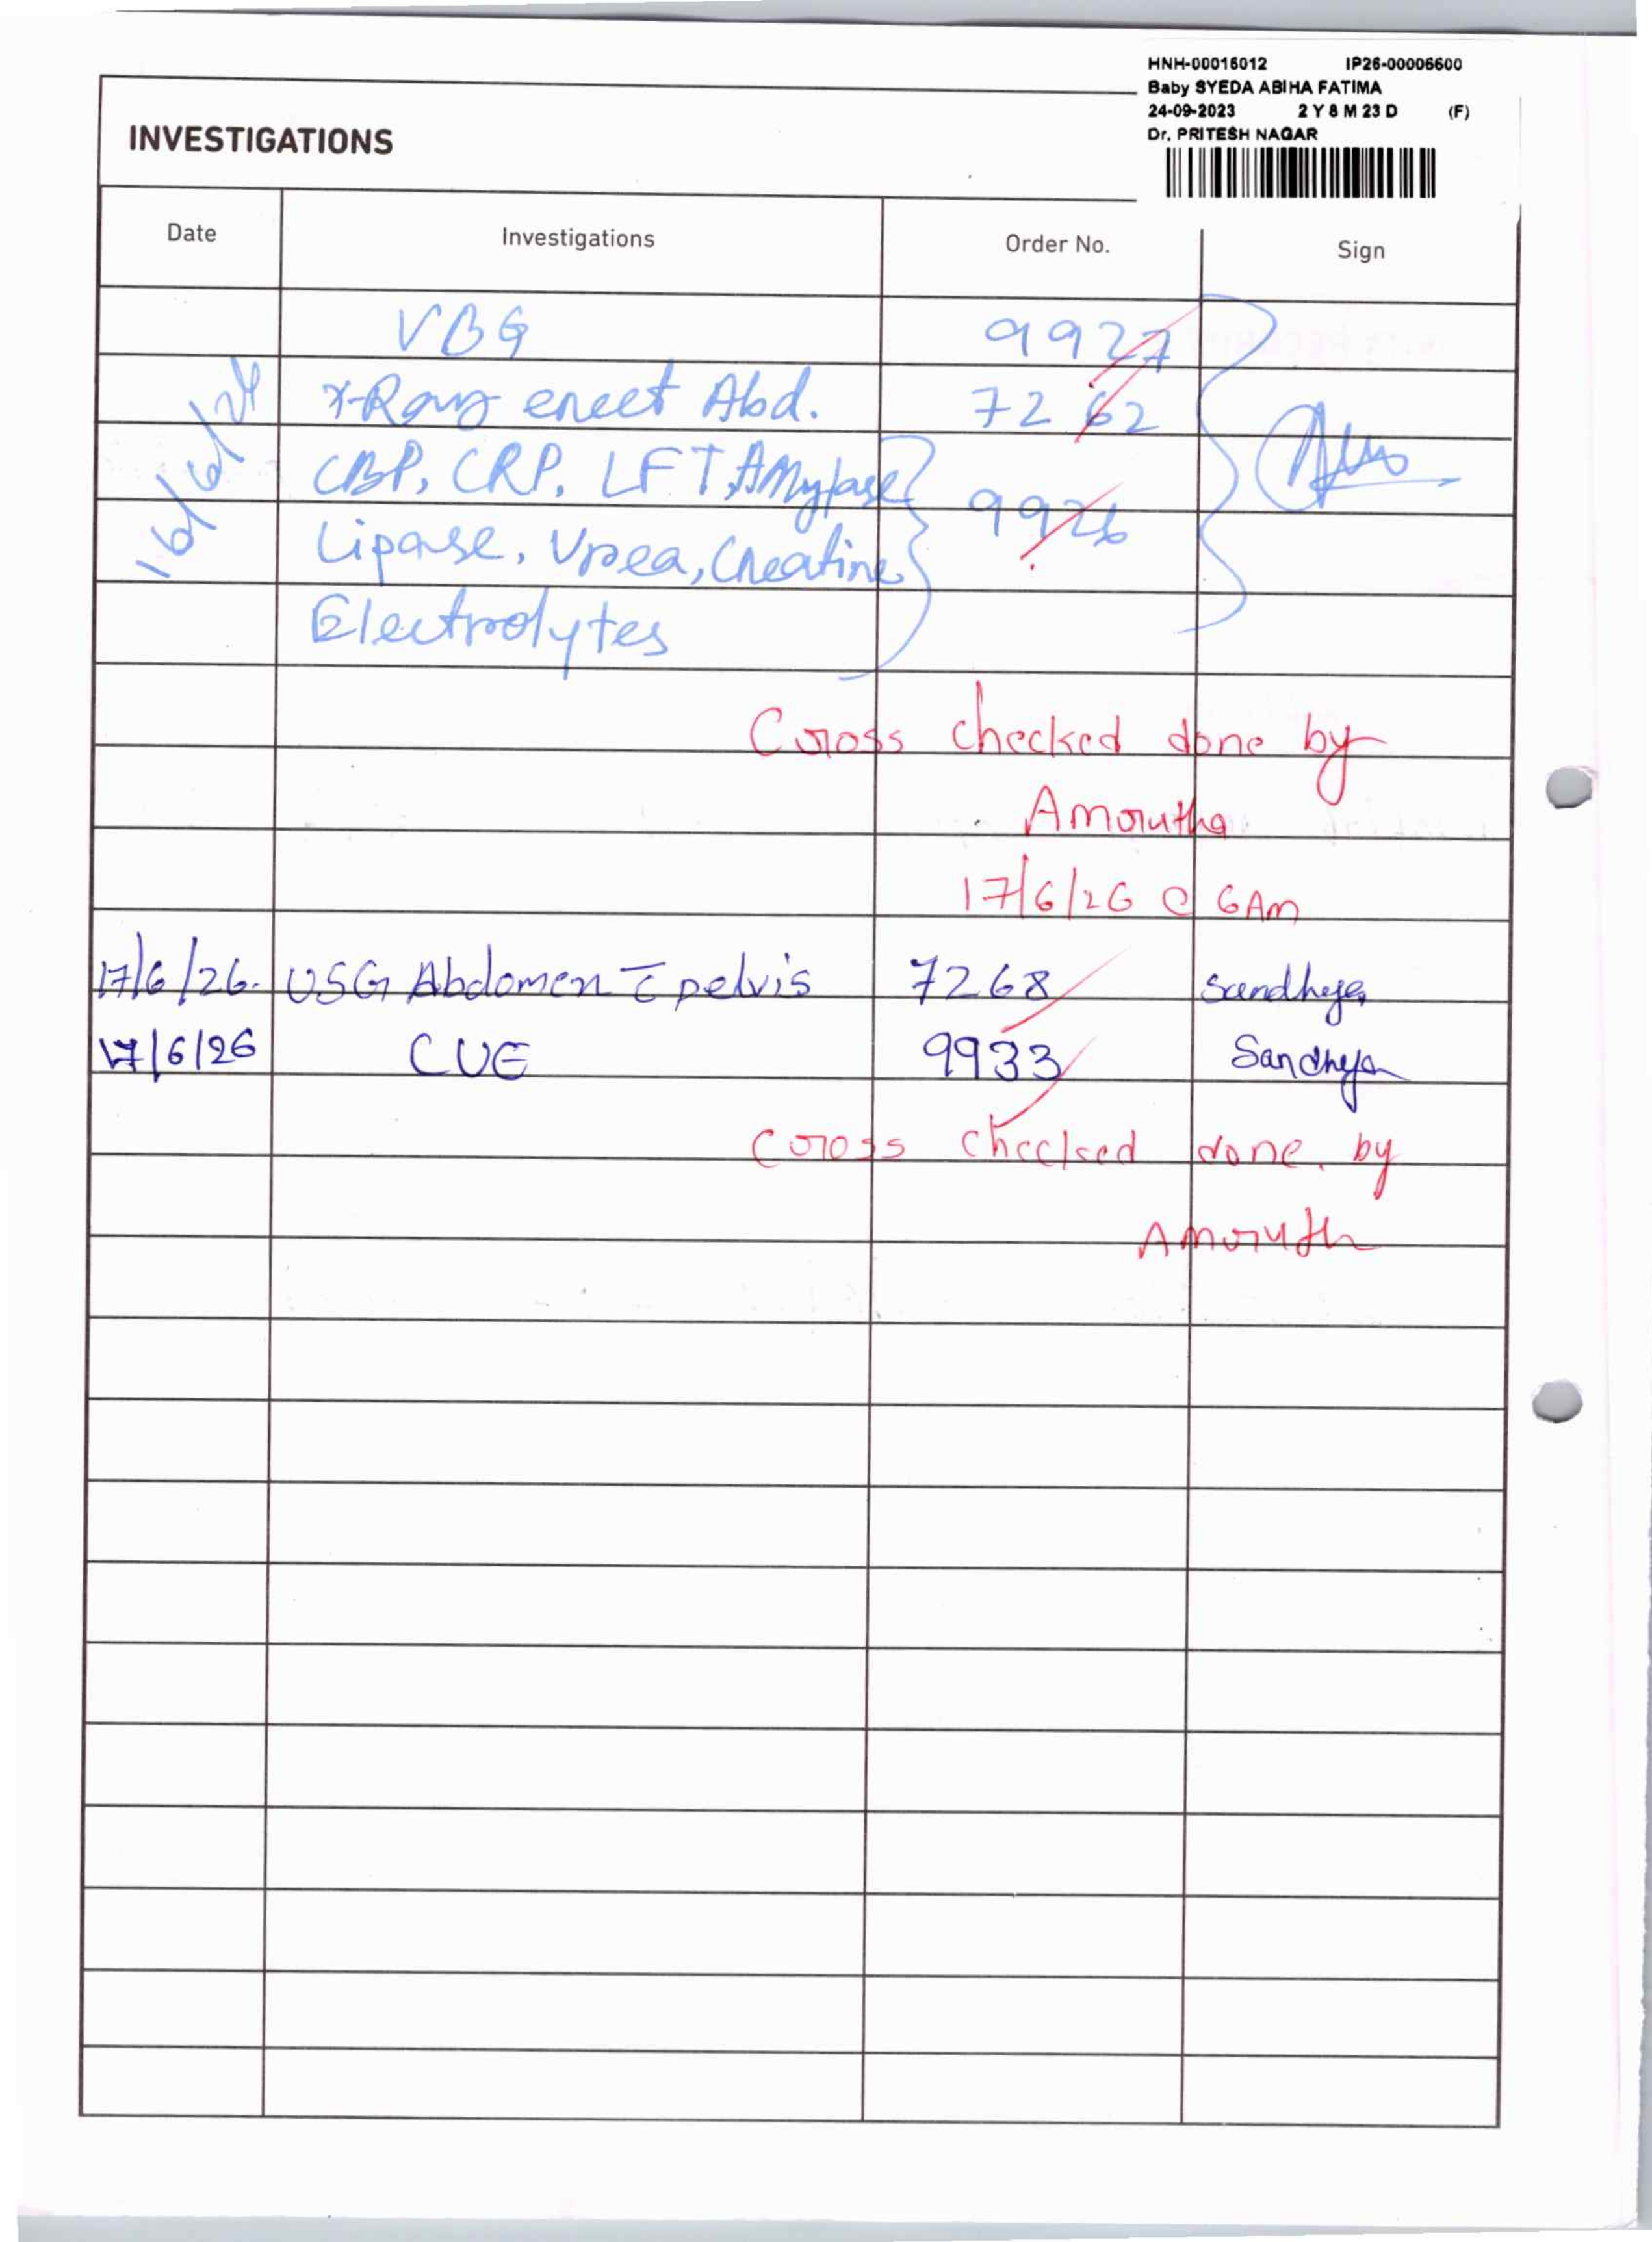 HNH-00016012 IP26-00006600
Baby SYEDA ABIHA FATIMA
24-09-2023 2 Y 8 M 23 D (F)
Dr. PRITESH NAGAR
INVESTIGATIONS
Date Investigations Order No. Sign
VBG 9927
X-Ray erect Abd. 7262
CBP, CRP, LFT, AMylase
Lipase, Urea, Creatine 9926
Electrolytes
Cross checked done by
Amrutha
17/6/26 @ 6Am
17/6/26. USG Abdomen c̄ pelvis 7268 Sandhya
17/6/26 CUE 9933 Sandhya
Cross checked done. by
Amruth